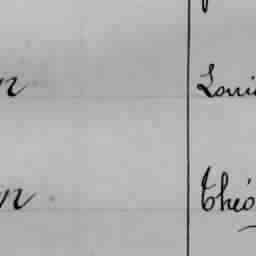 n Loui
n Théo